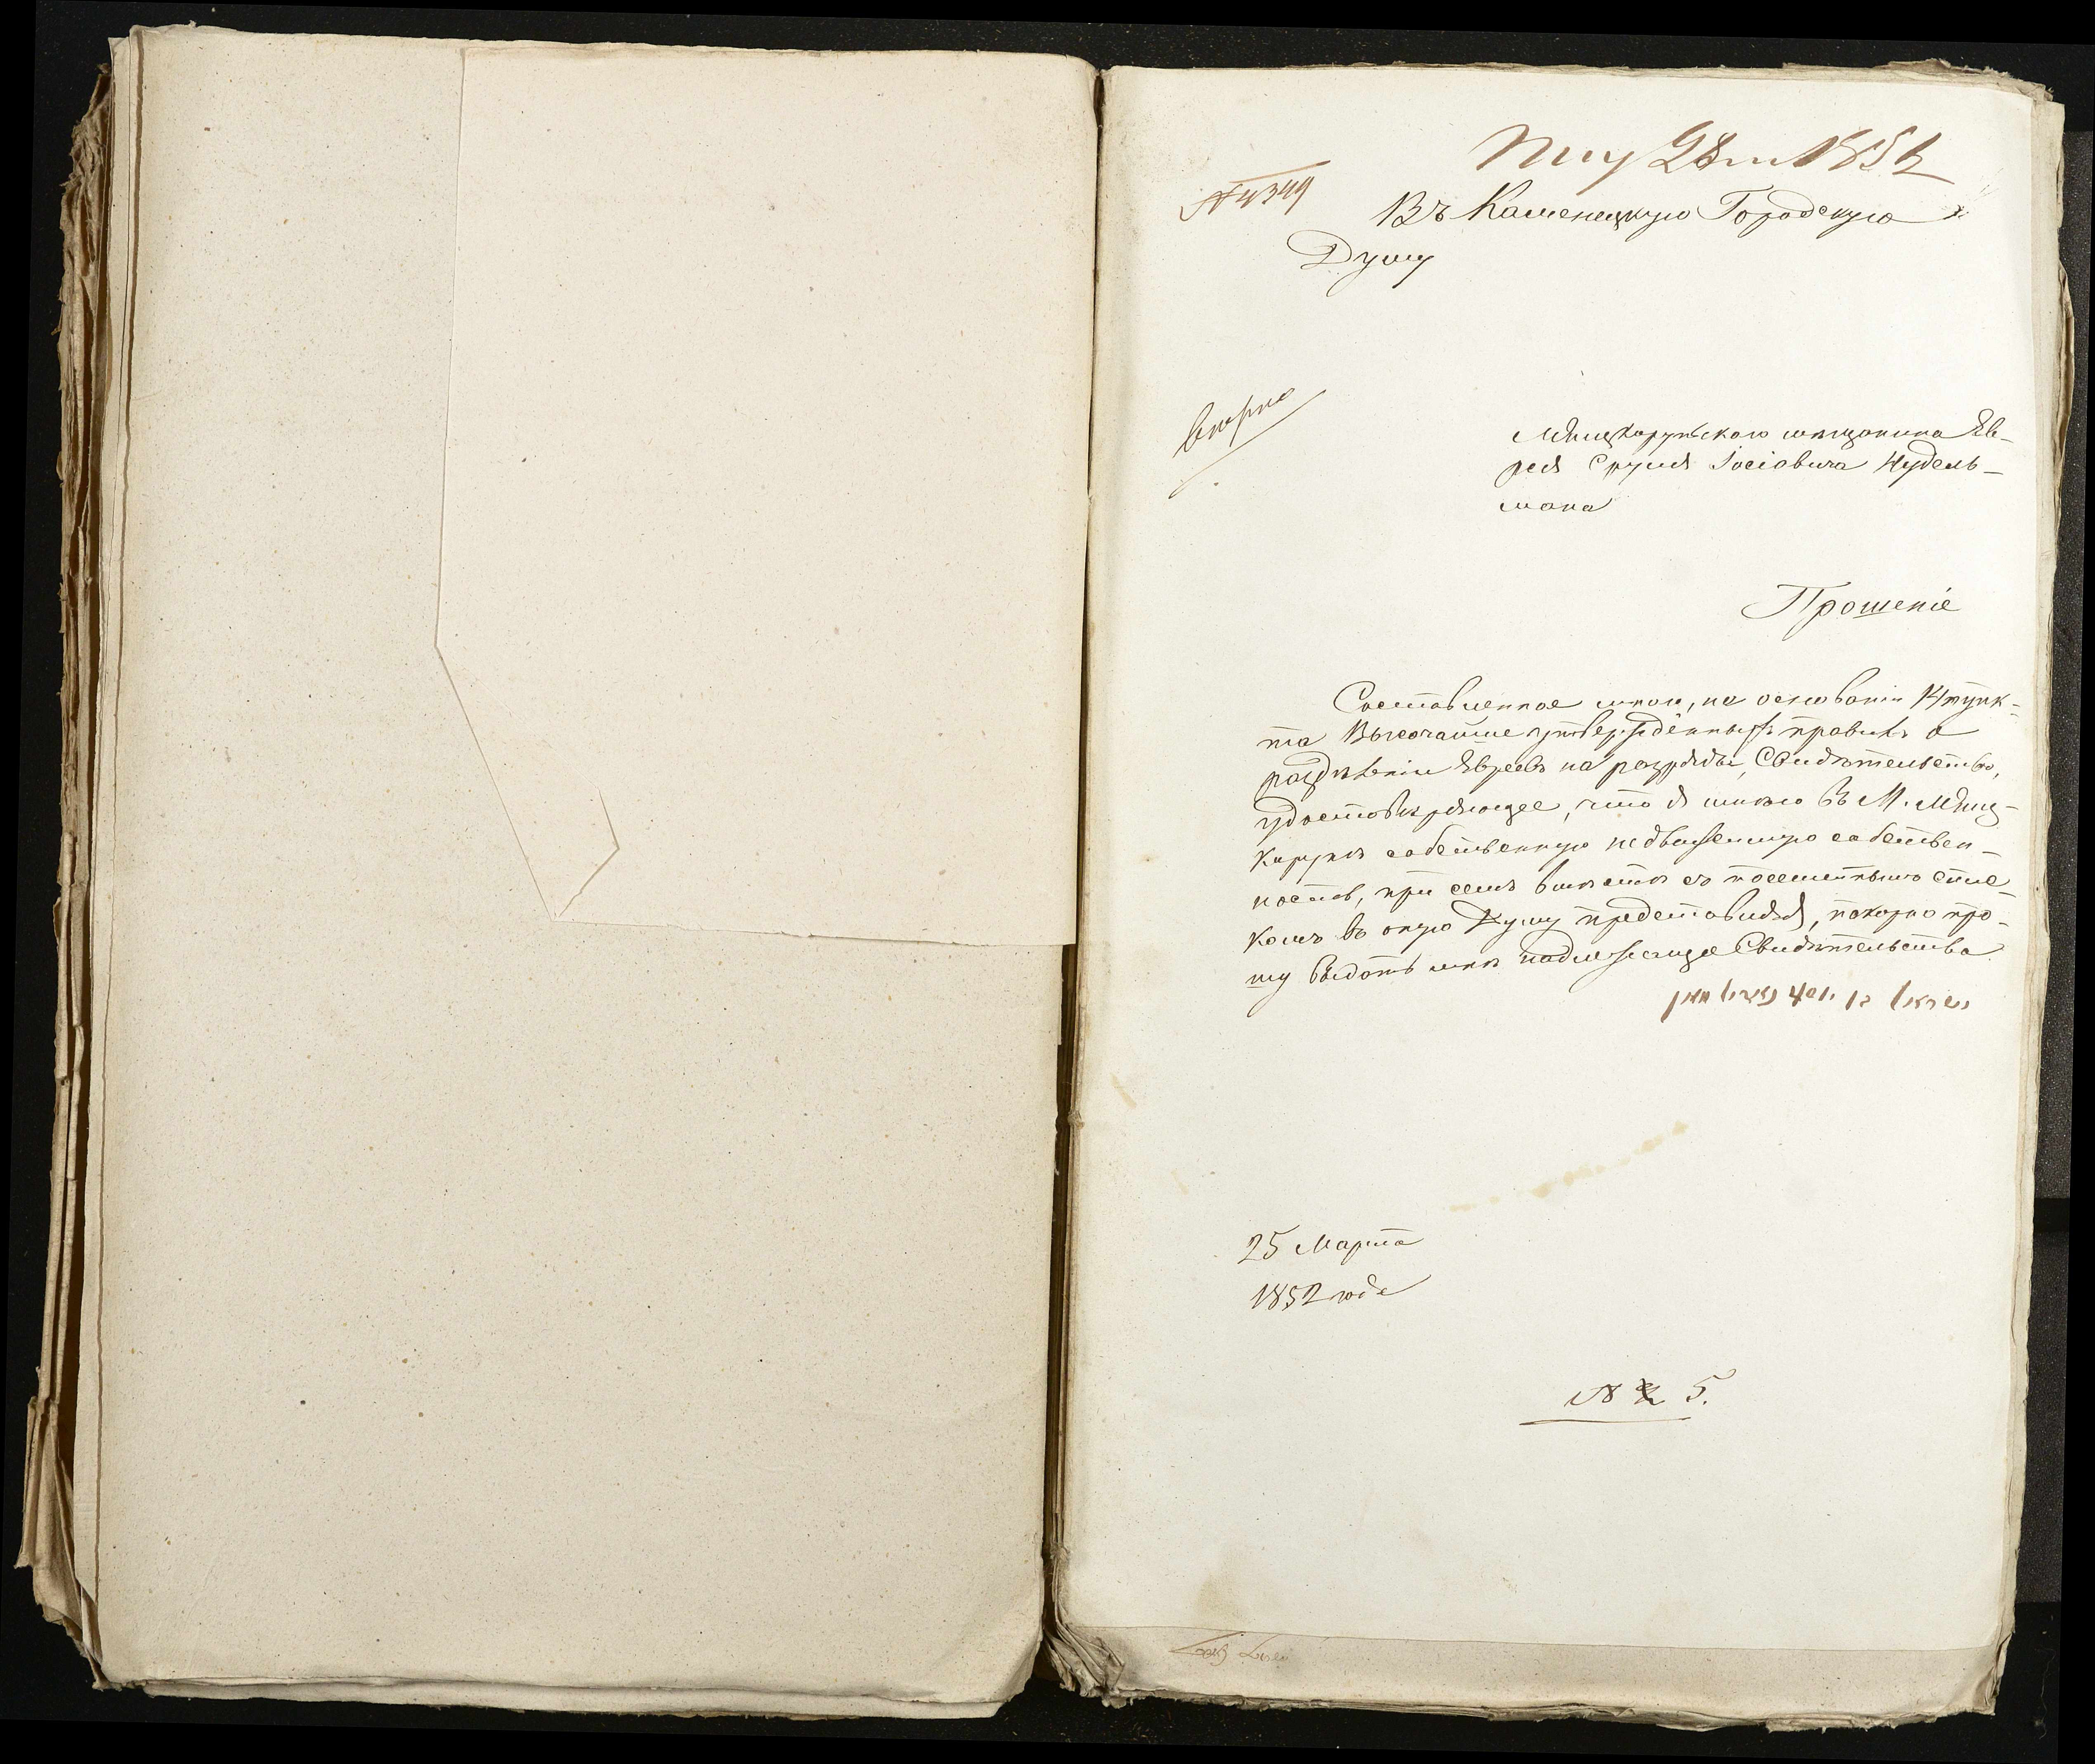 № 4349
1852
Въ Каменецкую Городскую
Думу
Миньковецкого мѣщанина Ев-
рея Сруля Іосіовича Нудель-
мана
Прошеніе
Составленное мною, на основаніи 14 пунк-
та Высочайше утвержденныхъ правилъ о
раздѣленіи Евреевъ на разряды, Свидѣтельство,
удостовѣряющее, что я имѣю въ М.
собственную недвижимую собствен-
ность, при семъ вмѣстѣ съ посемейнымъ спис-
комъ въ оную Думу представляя, покорно про-
шу выдать мнѣ надлежащее Свидѣтельства
25 Марта
1852 года
№ 5.